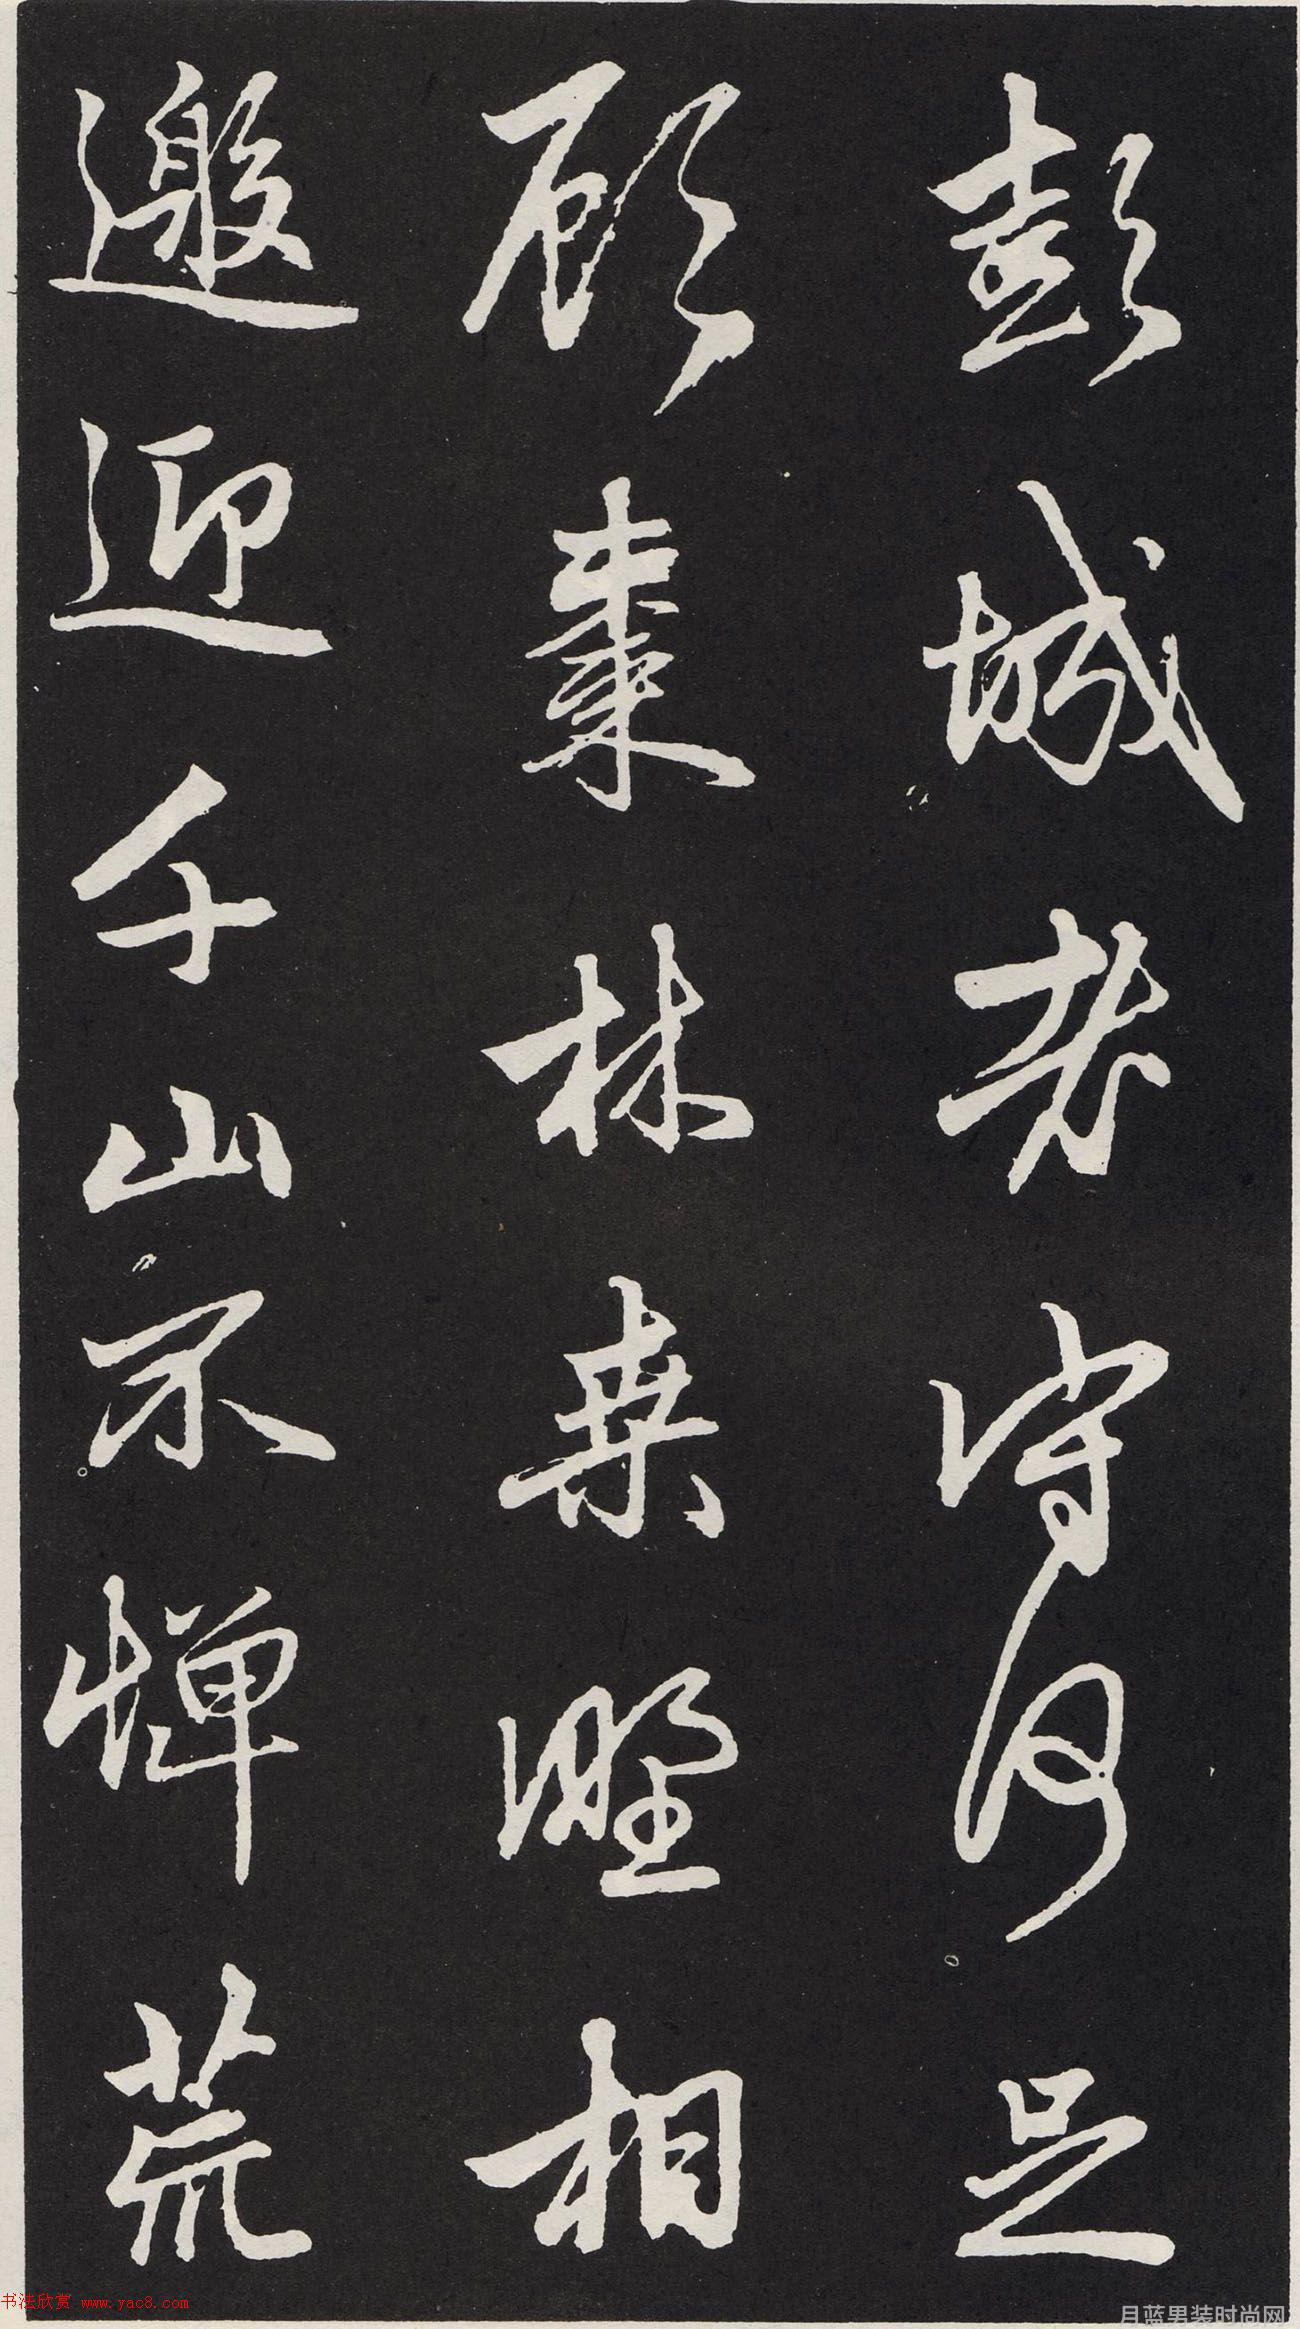 彭城老守何足
顧棗林桑野相
邀迎千山不憚荒
书法欣赏 www.yac8.com
月蓝男装时尚网